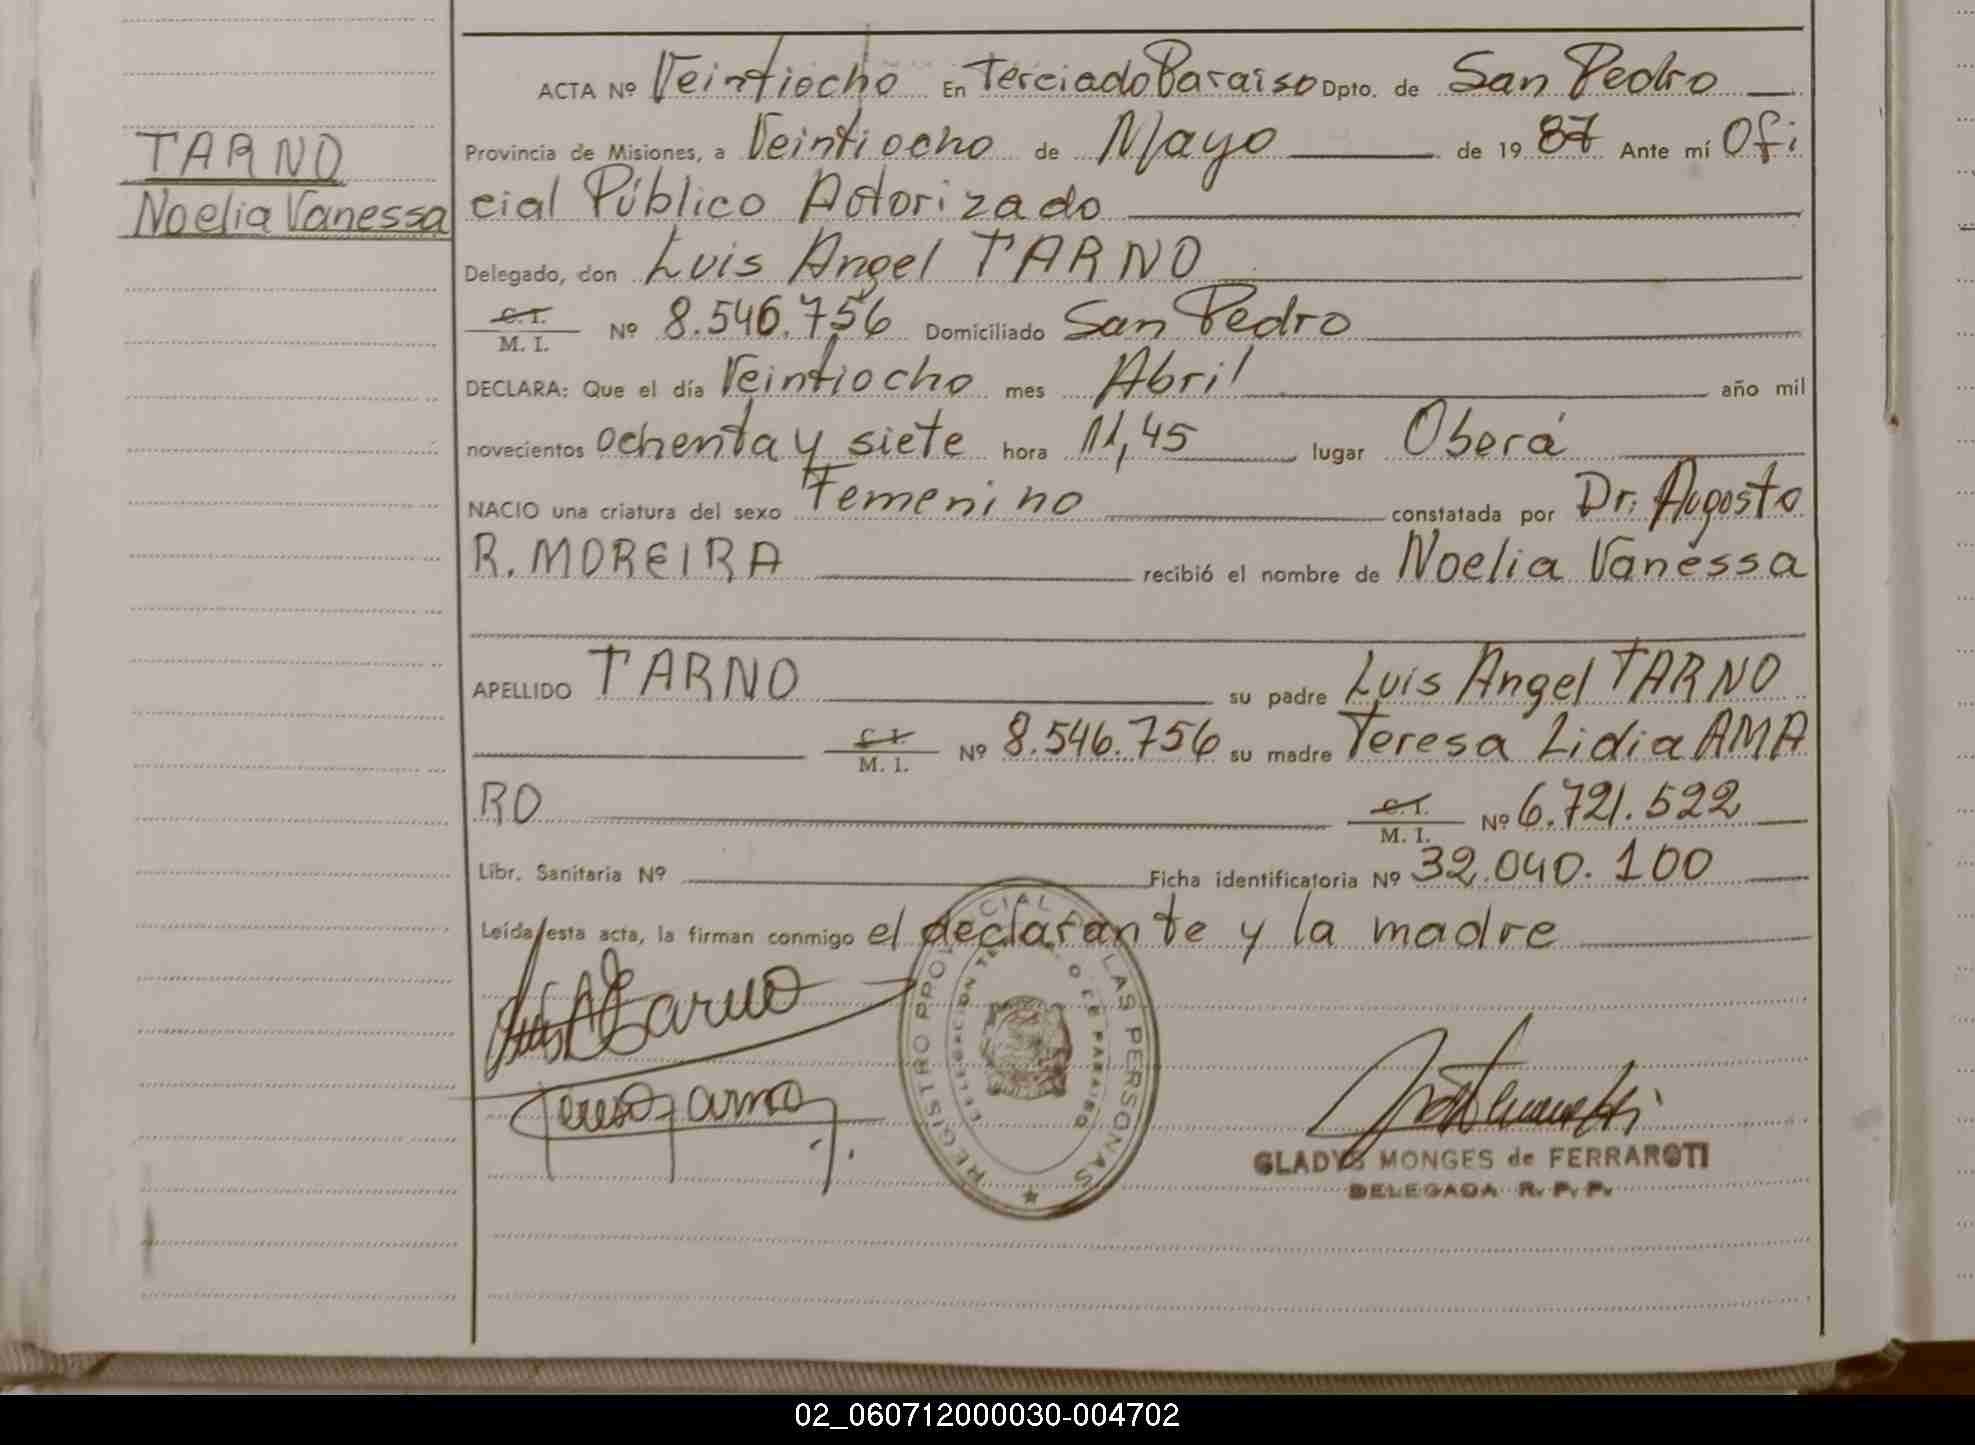 ACTA Nº Veintiocho En Terciado Paraiso Dpto. de San Pedro
TARNO
Noelia Vanessa
Provincia de Misiones, a Veintiocho de Mayo de 1987 Ante mí Ofi
cial Público Autorizado
Delegado, don Luis Angel TARNO
C. I.
M. I. Nº 8.546.756 Domiciliado San Pedro
DECLARA: Que el día Veintiocho mes Abril año mil
novecientos ochenta y siete hora 11,45 lugar Oberá
NACIO una criatura del sexo Femenino constatada por Dr. Augusto
R. MOREIRA recibió el nombre de Noelia Vanessa
APELLIDO TARNO su padre Luis Angel TARNO
C. I.
M. I. Nº 8.546.756 su madre Teresa Lidia AMA
RO C. I.
M. I. Nº 6.721.522
Libr. Sanitaria Nº Ficha identificatoria Nº 32.040.100
Leída esta acta, la firman conmigo el declarante y la madre
REGISTRO PROVINCIAL DE LAS PERSONAS
GLADYS MONGES de FERRAROTI
DELEGADA R. P. P.
02_060712000030-004702